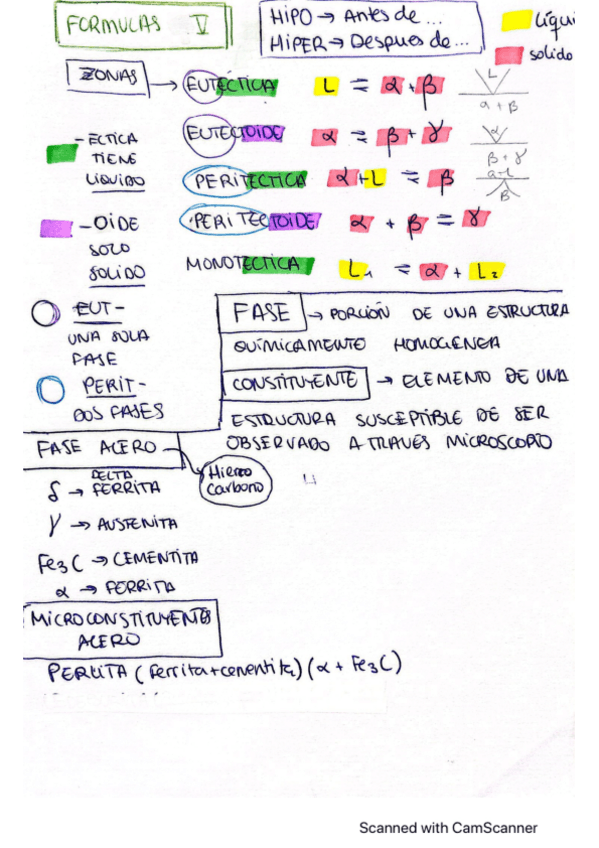 FORMULAS V
HIPO → Antes de ...
HIPER → Despues de ...
líqui
solido
ZONAS → EUTÉCTICA L ⇌ α + β
L
α + β
EUTECTOIDE α ⇌ β + γ
α
β + γ
PERITECTICA α + L ⇌ β
α+L
β
PERITECTOIDE α + β ⇌ γ
MONOTECTICA L₁ ⇌ α + L₂
- ECTICA
TIENE
LIQUIDO
- OIDE
SOLO
SOLIDO
EUT -
UNA SOLA
FASE
PERIT -
DOS FASES
FASE → PORCIÓN DE UNA ESTRUCTURA
QUÍMICAMENTE HOMOGENEA
CONSTITUYENTE → ELEMENTO DE UNA
ESTRUCTURA SUSCEPTIBLE DE SER
OBSERVADO A TRAVÉS MICROSCOPIO
FASE ACERO
Hierro
Carbono
DELTA
δ → FERRITA
γ → AUSTENITA
Fe₃C → CEMENTITA
α → FERRITA
MICROCONSTITUYENTES
ACERO
PERLITA (Ferrita+cementita) (α + Fe₃C)
Scanned with CamScanner